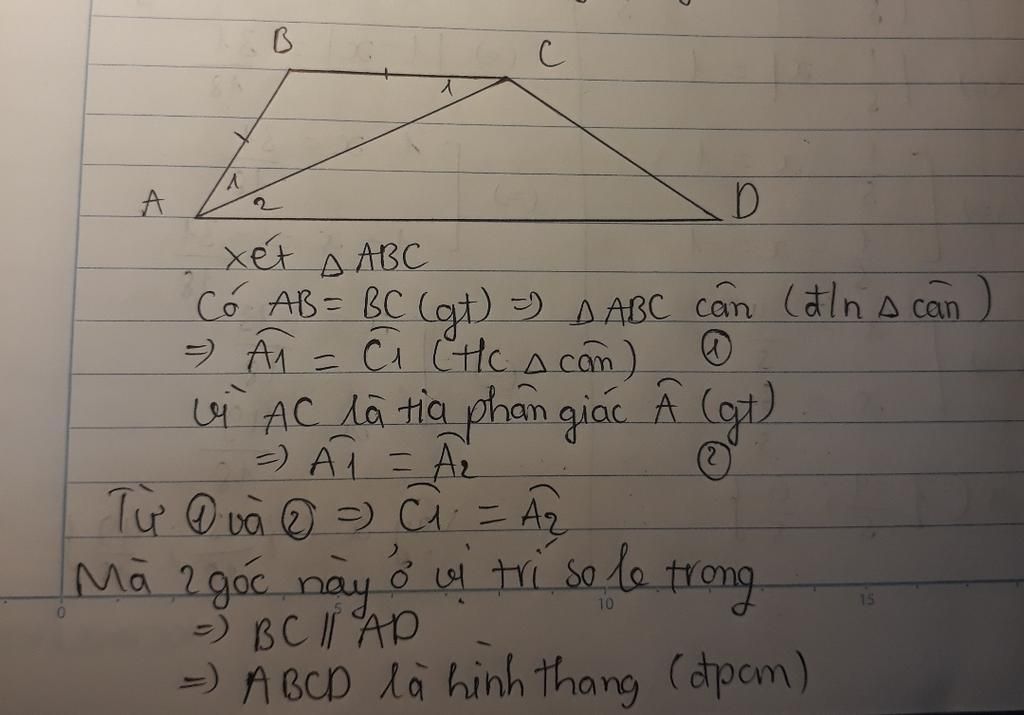 B
C
1
1
2
A
D
xét △ ABC
Có AB = BC (gt) => △ ABC cân (đ/n △ cân)
=> Â1 = Ĉ1 (t/c △ cân) ①
Vì AC là tia phân giác Â (gt)
=> Â1 = Â2 ②
Từ ① và ② => Ĉ1 = Â2
Mà 2 góc này ở vị trí so le trong
0 5 10 15
=> BC // AD
=> ABCD là hình thang (đpcm)